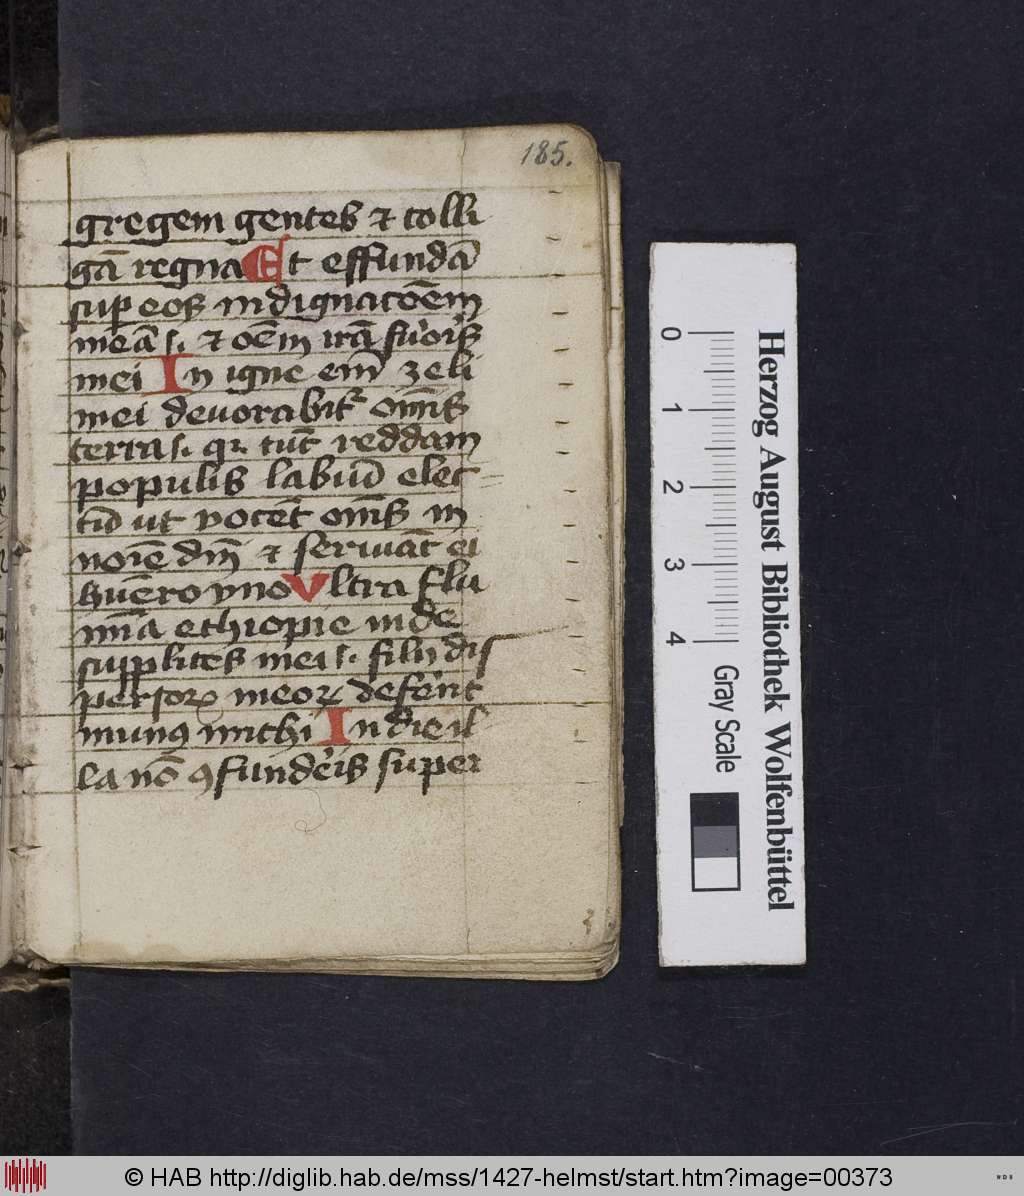 185.
gregem gentes ⁊ colli
gā regna Et effundā
sup eos indignacōem
meā s. ⁊ oēm irā furoris
mei In igne em̄ zeli
mei deuorabit᷑ om̄is
terra s. qr. tūc reddam
populis labiū elec
tū ut vocēt om̄s in
noīe dn̄i ⁊ seruiāt ei
huēro vno Vltra flu
mīa ethiopie inde
supplices mei s. filij dis
persoꝝ meoꝝ deferēt
munꝰ michi In die il
la nō ꝯfunderis super
0 1 2 3 4
Gray Scale
Herzog August Bibliothek Wolfenbüttel
© HAB http://diglib.hab.de/mss/1427-helmst/start.htm?image=00373